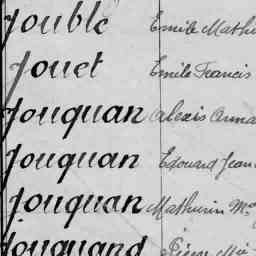 Jouble Emile Mathu
Jouet Emile Francis
Jouquan Alexis Arma
Jouquan Edouard Jean
Jouquan Mathurin M
Jouquand Pierre